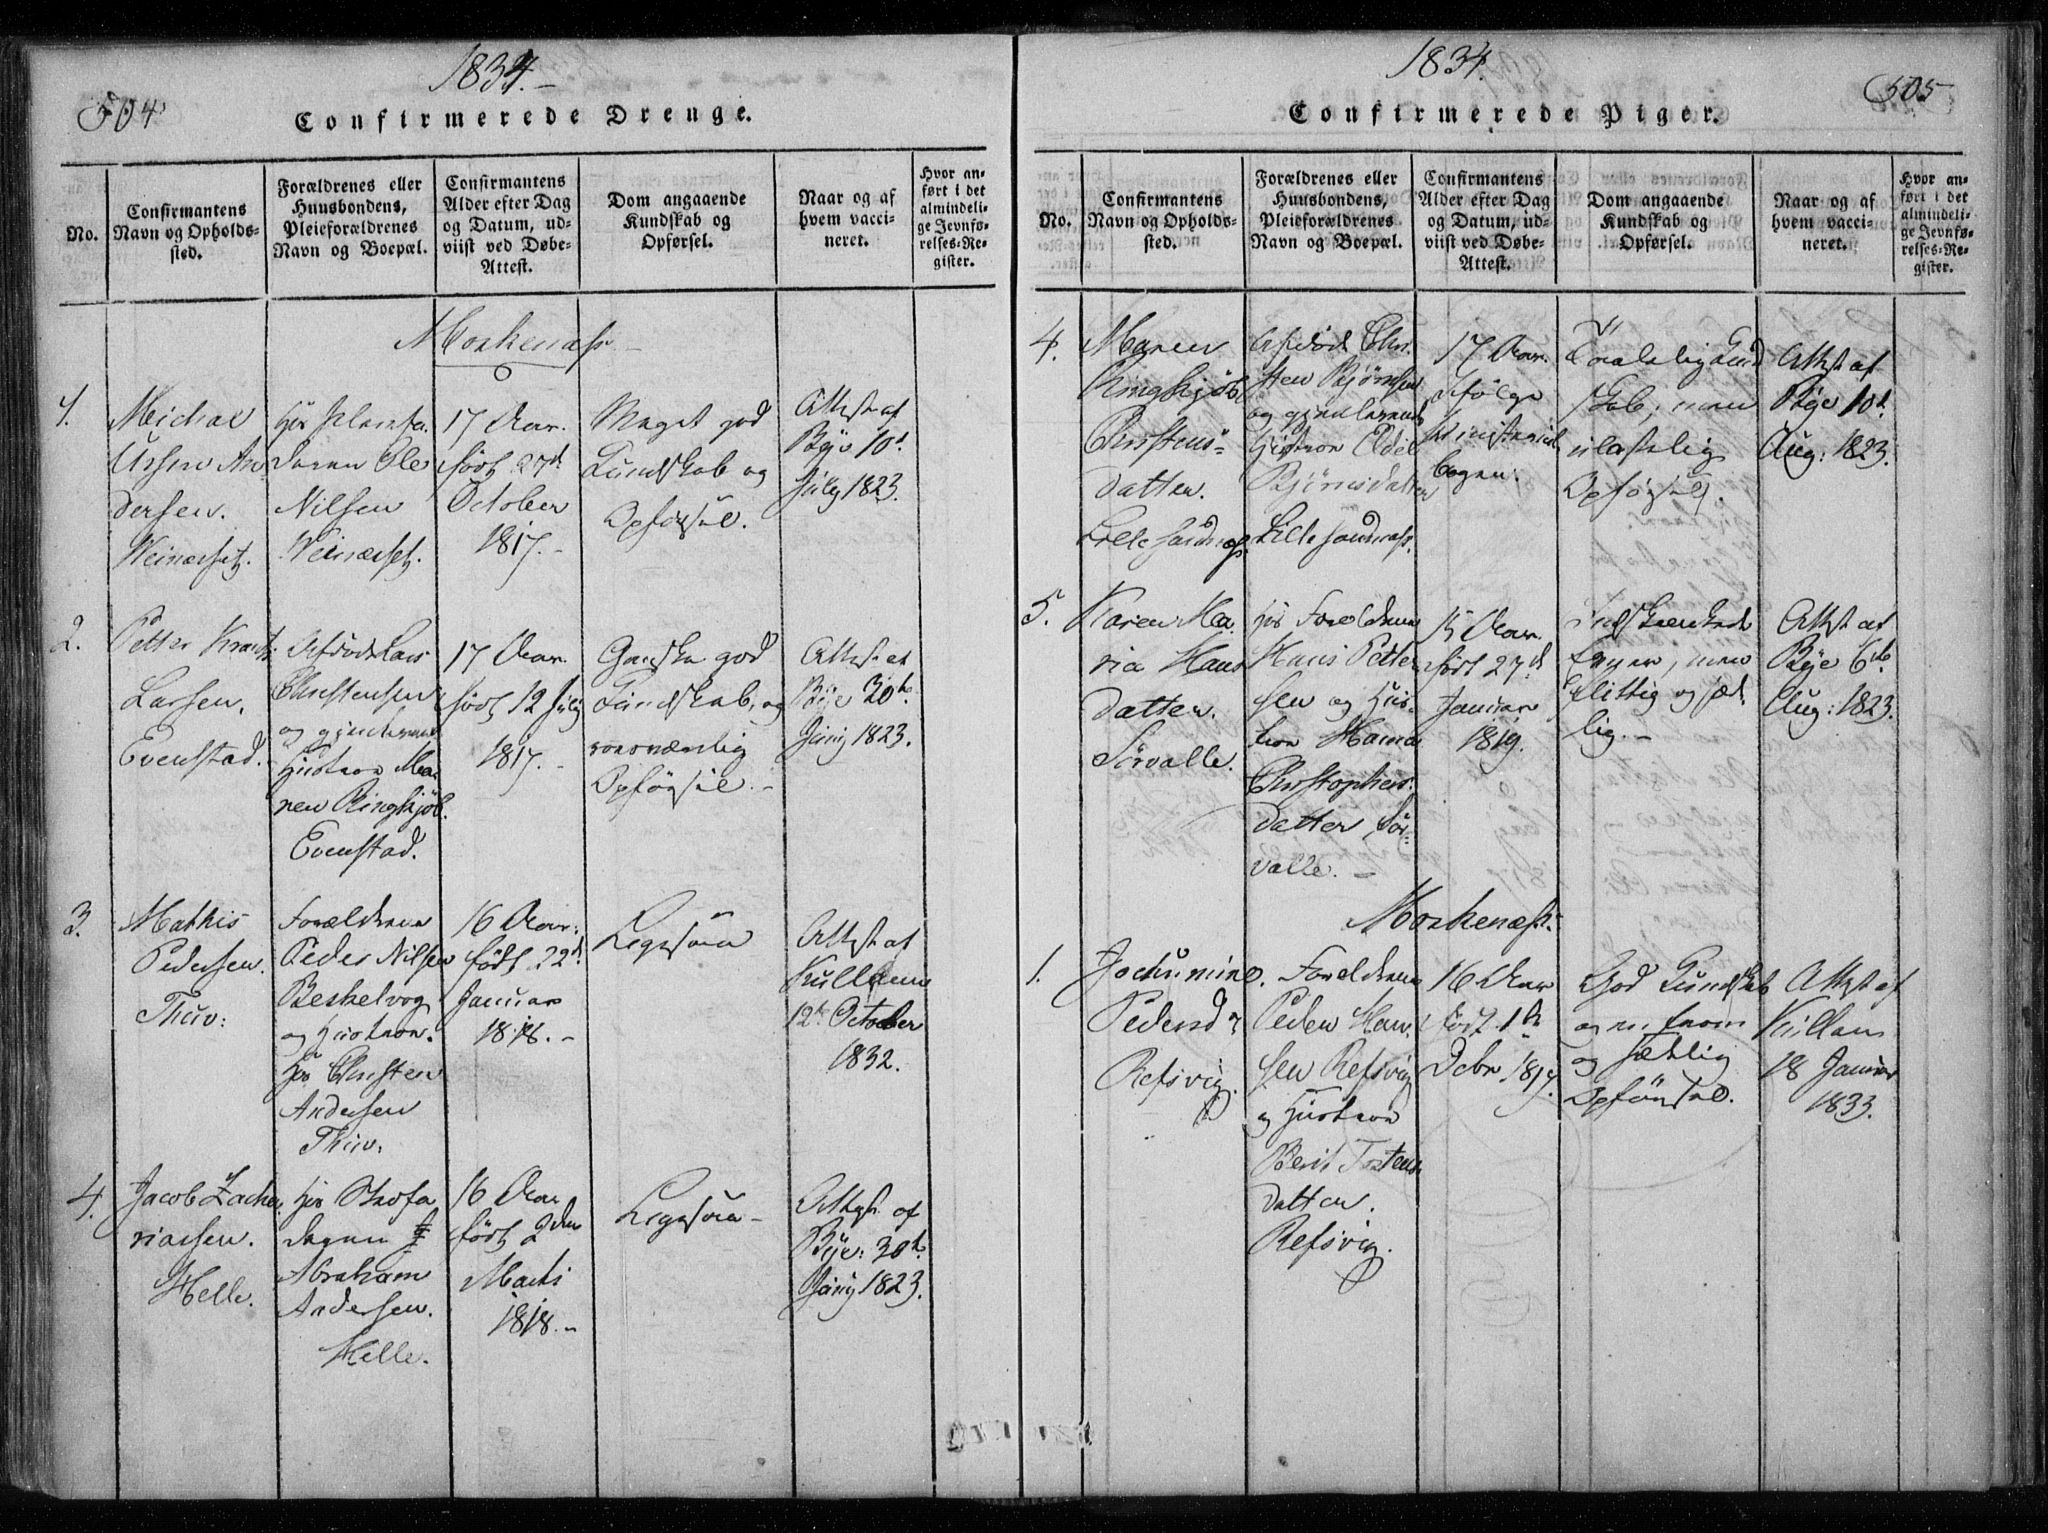 504
1834.
Confirmerede Drenge.
No.
Confirmantens
Navn og Opholds-
sted.
Forældrenes eller
Huusbondens,
Pleieforældrenes
Navn og Boepæl.
Confirmantens
Alder efter Dag
og Datum, ud-
viist ved Døbe-
Attest.
Dom angaaende
Kundskab og
Opførsel.
Naar og af
hvem vacci-
neret.
Hvor an-
ført i det
almindeli-
ge Jevnfø-
relses-Re-
gister.
Moskenæss
1.
Michal
Ussen An
dersen.
Weinærset.
Ole
Nilsen
Weinærset.
17 Aar.
født 27d
October
1817.-
Meget god
Kundskab og
Opførsel.
Attest af
Bye 10d
July 1823.
2.
Petter
Larsen.
Evenstad.
Afdøde Lars
Christensen
og gjenlevende
Hustroe Ma
ren Ringskjöb.
Evenstad.
17 Aar.
født 12 July
1817.-
Ganske god
Kundskab, og
Opførsel.-
Attest af
Bye 30te
Juny 1823.
3.
Mathis
Pedersen.
Thuv:
Forældrene
Peder Nilsen
Beskelvog
og Hustroe.
hos Christen
Andersen
Thuv:
16 Aar:
født 22d
Januar
1818.-
Ligesaa
Attest af
Kullam
12te October
1832.
4.
Jacob Zacha
riassen.
Helle.
Abraham
Andersen.
Helle.
16 Aar
født 2den
Marts
1818.-
Ligesaa-
Attest af
Bye: 30te
Juny 1823.
1834.
505
Confirmerede Piger.
No.
Confirmantens
Navn og Opholds-
sted.
Forældrenes eller
Huusbondens,
Pleieforældrenes
Navn og Boepæl.
Confirmantens
Alder efter Dag
og Datum, ud-
viist ved Døbe-
Attest.
Dom angaaende
Kundskab og
Opførsel.
Naar og af
hvem vacci-
neret.
Hvor an-
ført i det
almindeli-
ge Jevnfø-
relses-Re-
gister.
4.
Maren
Ringskjöb
Christens-
datter.
Lille Sandnæss
Afdöd Chri
sten Björnsen
og gjenlevende
Hustroe Eldel
Björnsdatter
Lille Sandnæss.
17 Aar.
Ifölge
Ministerial
bogen.
Taalelig Kund
skab, men
ulastelig
Opførsel.
Attest af
Bye 10d.
Aug: 1823.
5.
Karen Ma
ria Hans
datter.
Sörvalle.
hos Foreldrene
Hans Petter
sen og Hus-
troe Hanna
Christophers-
datter Sör-
valle.-
15 Aar.
født 27d
Januar
1819.
Indskrænkede
Evner, men
flittig og sæd
lig.-
Attest af
Bye 6te
Aug: 1823.
Moskenæss.
1.
Jochumine
Pedersd r
Refsvig.
Foreldrene
Peder Han
sen Refsvig
og Hustroe
Berit Tostens
datter.
Refsvig.
16 Aar
født 1te
Debr 1817.
God Kundskab
og
og sædelig
Opførsel.
Attest af
Kullam
18 Januar
1833.